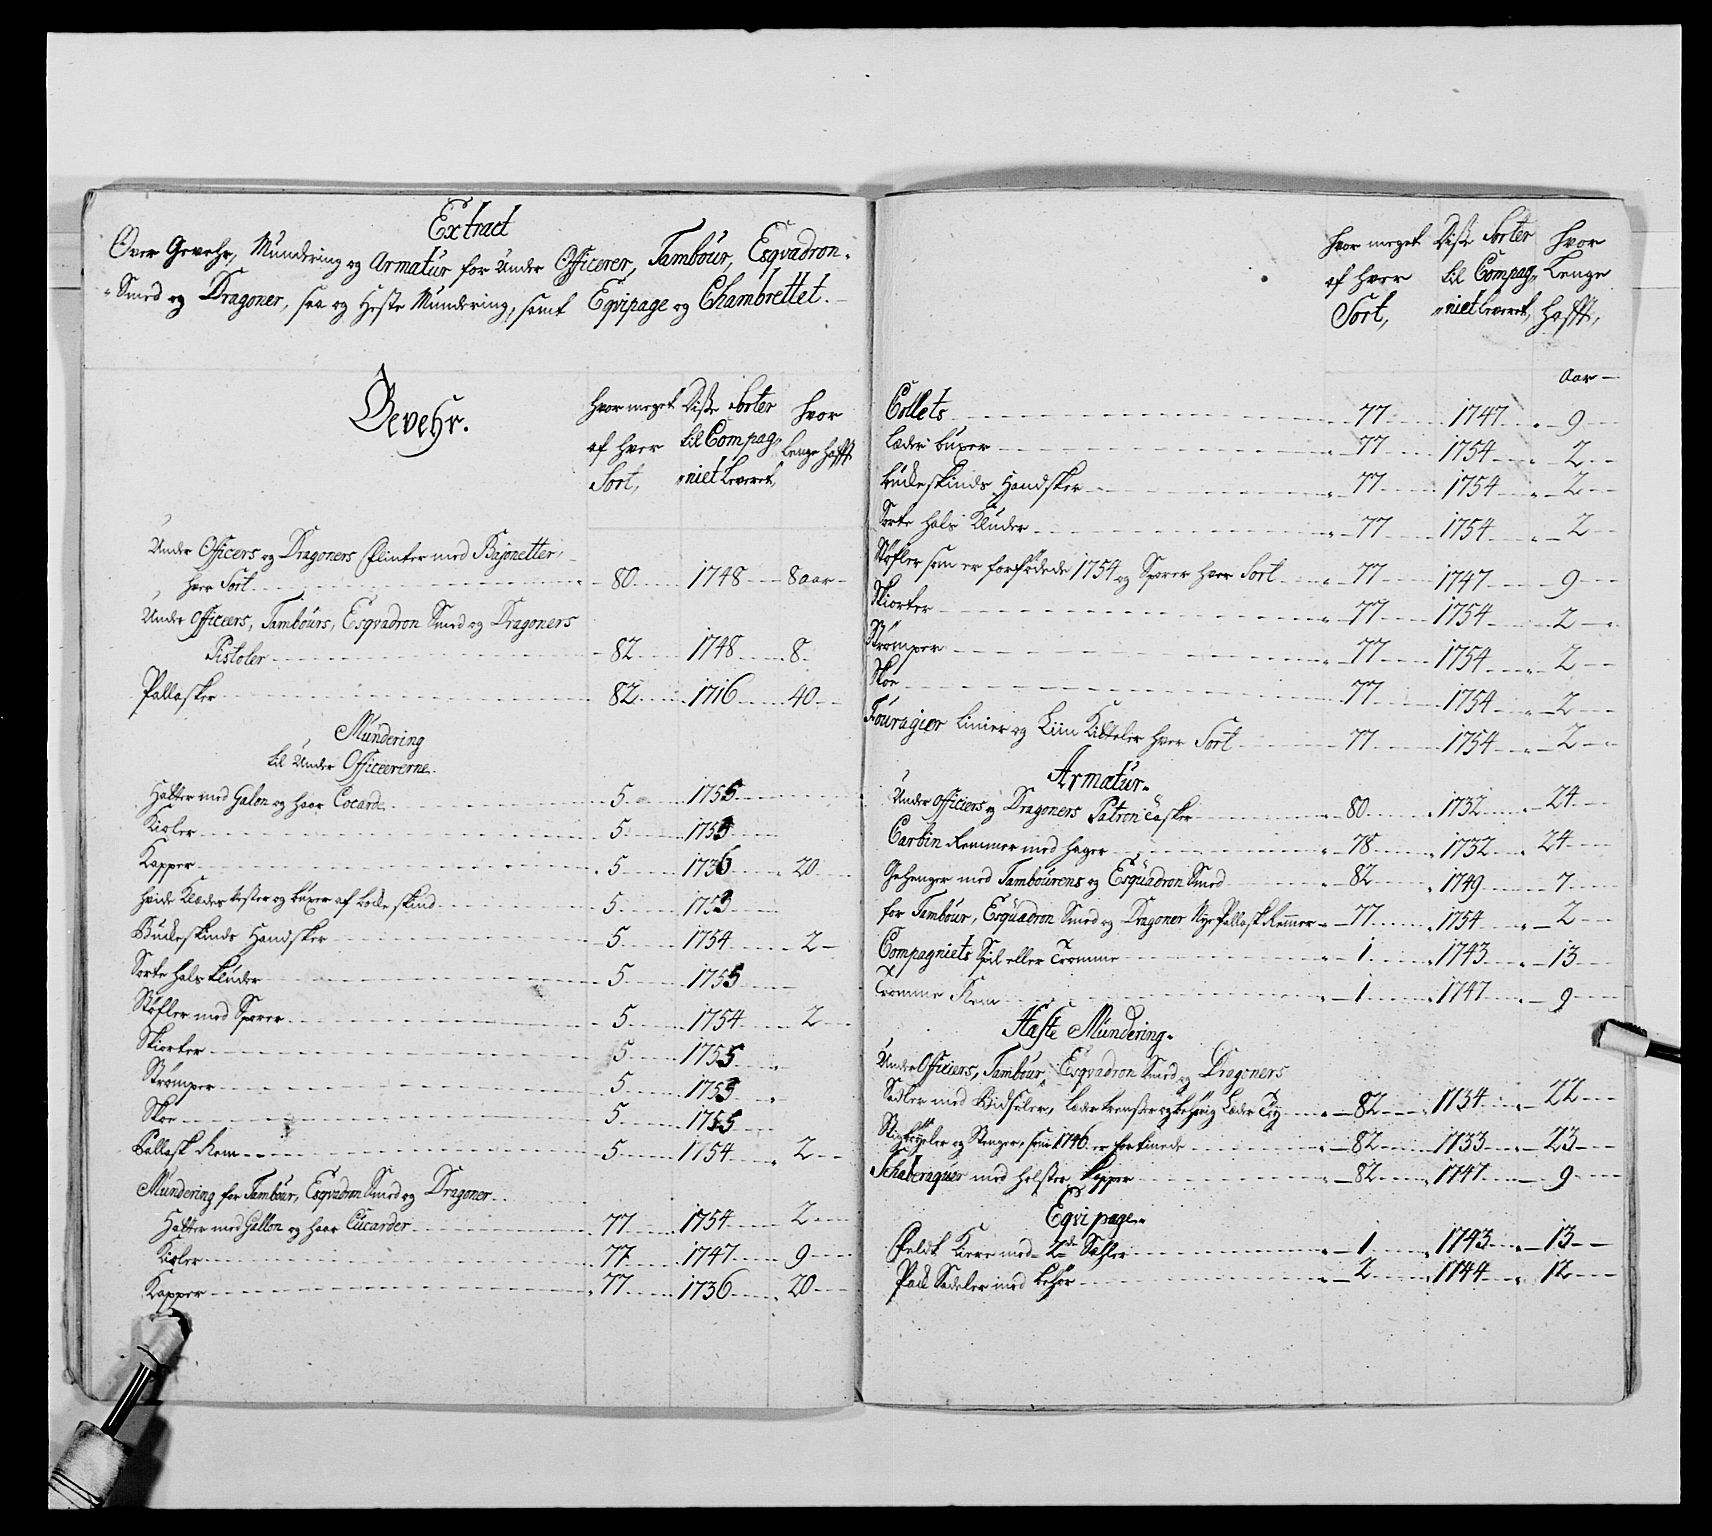 Extract
Over Gevehr, Mundering og Armatur for Under Officerer, Tambour, Esqvadron-
-Smed og Dragoner, saa og Heste Mundering, samt Eqvipage og Chambrettet.
Gevehr.
Hvor meget af hver Sort,
Diße Sorter til Compag-
-niet leveret,
Hvor lenge hafft
Under Officers og Dragoners Flinter med Bajonetter,
hver Sort 80 1748 8 aar
Under Officeers, Tambours, Esqvadron Smed og Dragoners
Pistoler 82 1748 8
Pallasker 82 1716 40
Mundering
til Under Officeererne
Hatter med Galon og haar Cocarde 5 1755
Kioler 5 1753
Kapper 5 1736 20
Klædes vester og buxer af 5 1753
Bukeskinds Handsker 5 1754 2
Sorte hals kluder 5 1755
Støfler med Sporer 5 1754 2
Skiorter 5 1755
Strømper 5 1755
Skoe 5 1755
Pallask Rem 5 1754 2
Mundering for Tambour, Esqvadron Smed og Dragoner
Hatter med Gallon og haar Cucarder 77 1754 2
Kioler 77 1747 9
Kapper 77 1736 20
Hvor meget af hver Sort,
Diße Sorter til Compag-
-niet leveret,
Hvor Lenge hafft,
Aar
Collets 77 1747 9
Læder buxer 77 1754 2
bukeskinds Handsker 77 1754 2
Sorte hals Kluder 77 1754 2
Støfler som er forfødede 1754 og Sporer hver Sort 77 1747 9
Skiorter 77 1754 2
Strømper 77 1754 2
Skoe 77 1754 2
Fouragier Linier og Liin Kitteler hver Sort 77 1754 2
Armatur
Under Officiers og Dragoners Patron Tasker 80 1732 24
Carbin Remmer med hager 78 1732 24
Gehenger med Tambourens og Esquadron Smed 82 1749 7
for Tambour, Esquadron Smed og Dragoner Nye Pallask Remmer 77 1754 2
Compagniets Spil eller Tromme 1 1743 13
Tromme Rem 1 1747 9
Hæste Mundering
Under Officiers, Tambour, Esqvadron Smed og Dragoners
Sadler med Bidseler, Læder trenßer og behørig Læder Tøy 82 1734 22
Stigbøyler og Stenger, som 1746 er fortinede 82 1733 23
Schaberaquer med holster Kapper 82 1747 9
Eqvipage
Feldt Kierre med 2de Sæhler 1 1743 13
Pak Sadeler med behør 2 1744 12